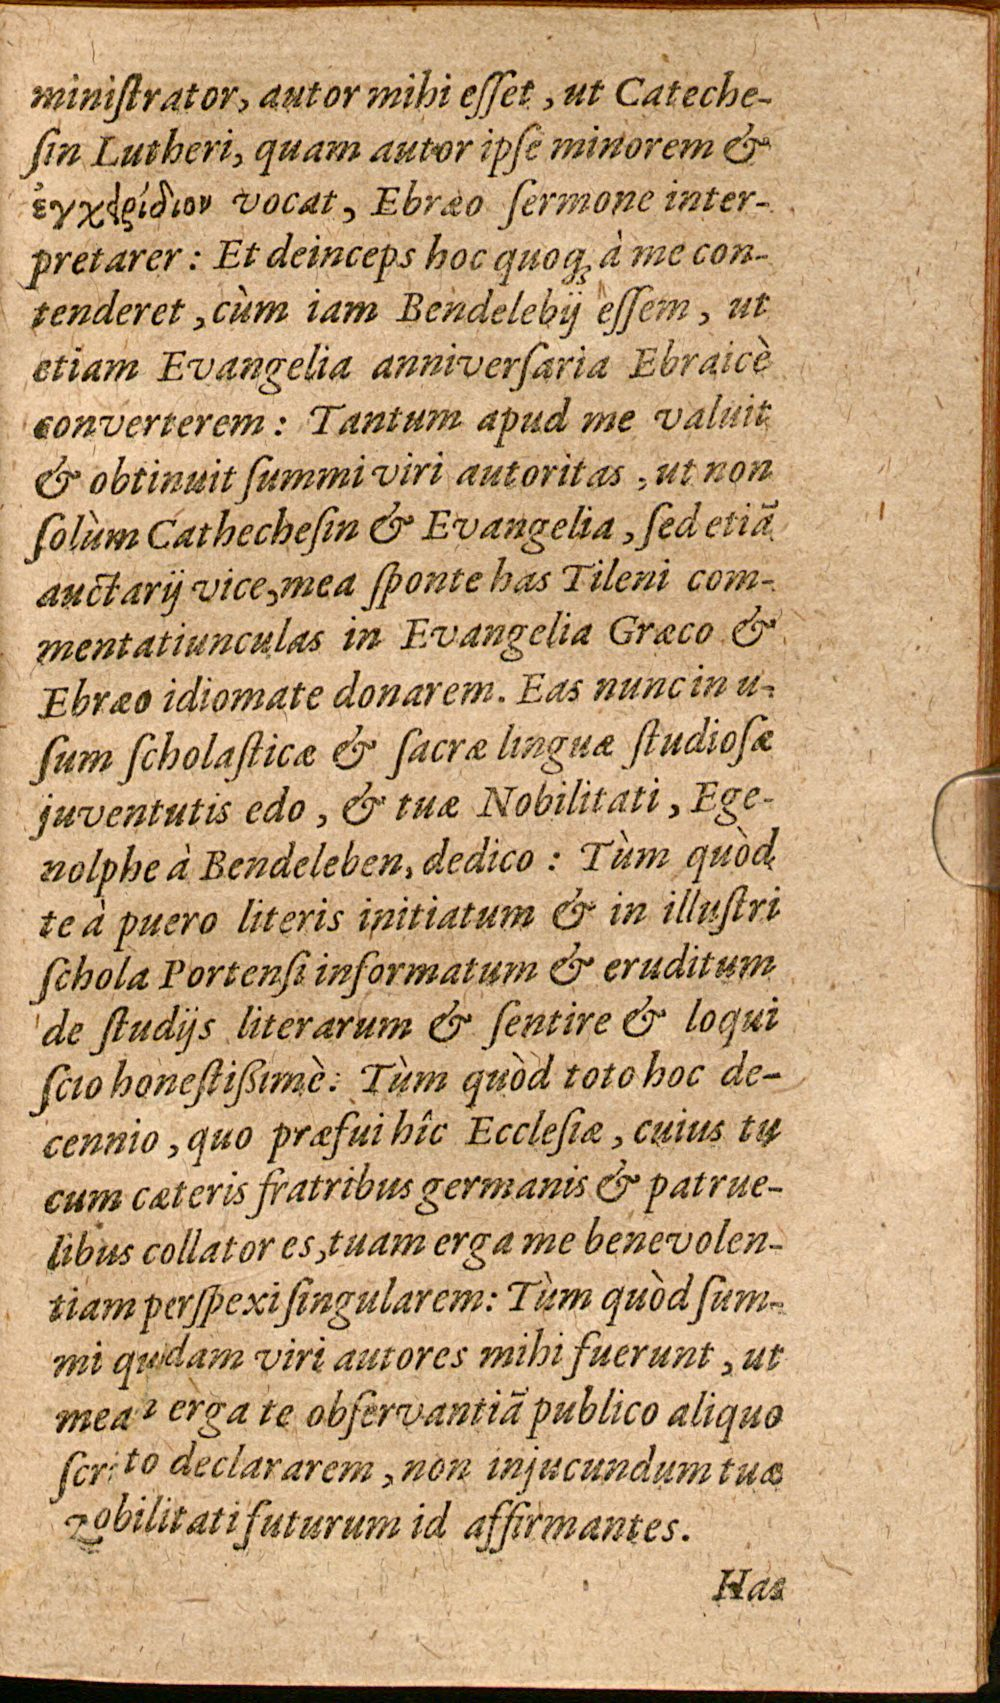 miniſtrator, autor mihi eſſet, ut Cateche-
ſin Lutheri, quam autor ipſe minorem &
ἐγχειρίδιον vocat, Ebræo ſermone inter-
pretarer: Et deinceps hoc quoqꝫ à me con-
tenderet, cùm iam Bendelebij eſſem, ut
etiam Evangelia anniverſaria Ebraicè
converterem: Tantum apud me valuit
& obtinuit ſummi viri autoritas, ut non
ſolùm Cathecheſin & Evangelia, ſed etiã
auctarij vice, mea ſponte has Tileni com-
mentatiunculas in Evangelia Græco &
Ebræo idiomate donarem. Eas nunc in u-
ſum ſcholaſticæ & ſacræ linguæ ſtudioſæ
juventutis edo, & tuæ Nobilitati, Ege-
nolphe à Bendeleben, dedico: Tùm quòd
te à puero literis initiatum & in illuſtri
ſchola Portenſi informatum & eruditum
de ſtudijs literarum & ſentire & loqui
ſcio honeſtißimè: Tùm quòd toto hoc de-
cennio, quo præfui hîc Eccleſiæ, cuius tu
cum cæteris fratribus germanis & patrue-
libus collator es, tuam erga me benevolen-
tiam perſpexi ſingularem: Tùm quòd ſum-
mi quidam viri autores mihi fuerunt, ut
meam erga te obſervantiã publico aliquo
ſcripto declararem, non injucundum tuæ
Nobilitati futurum id affirmantes.
Has